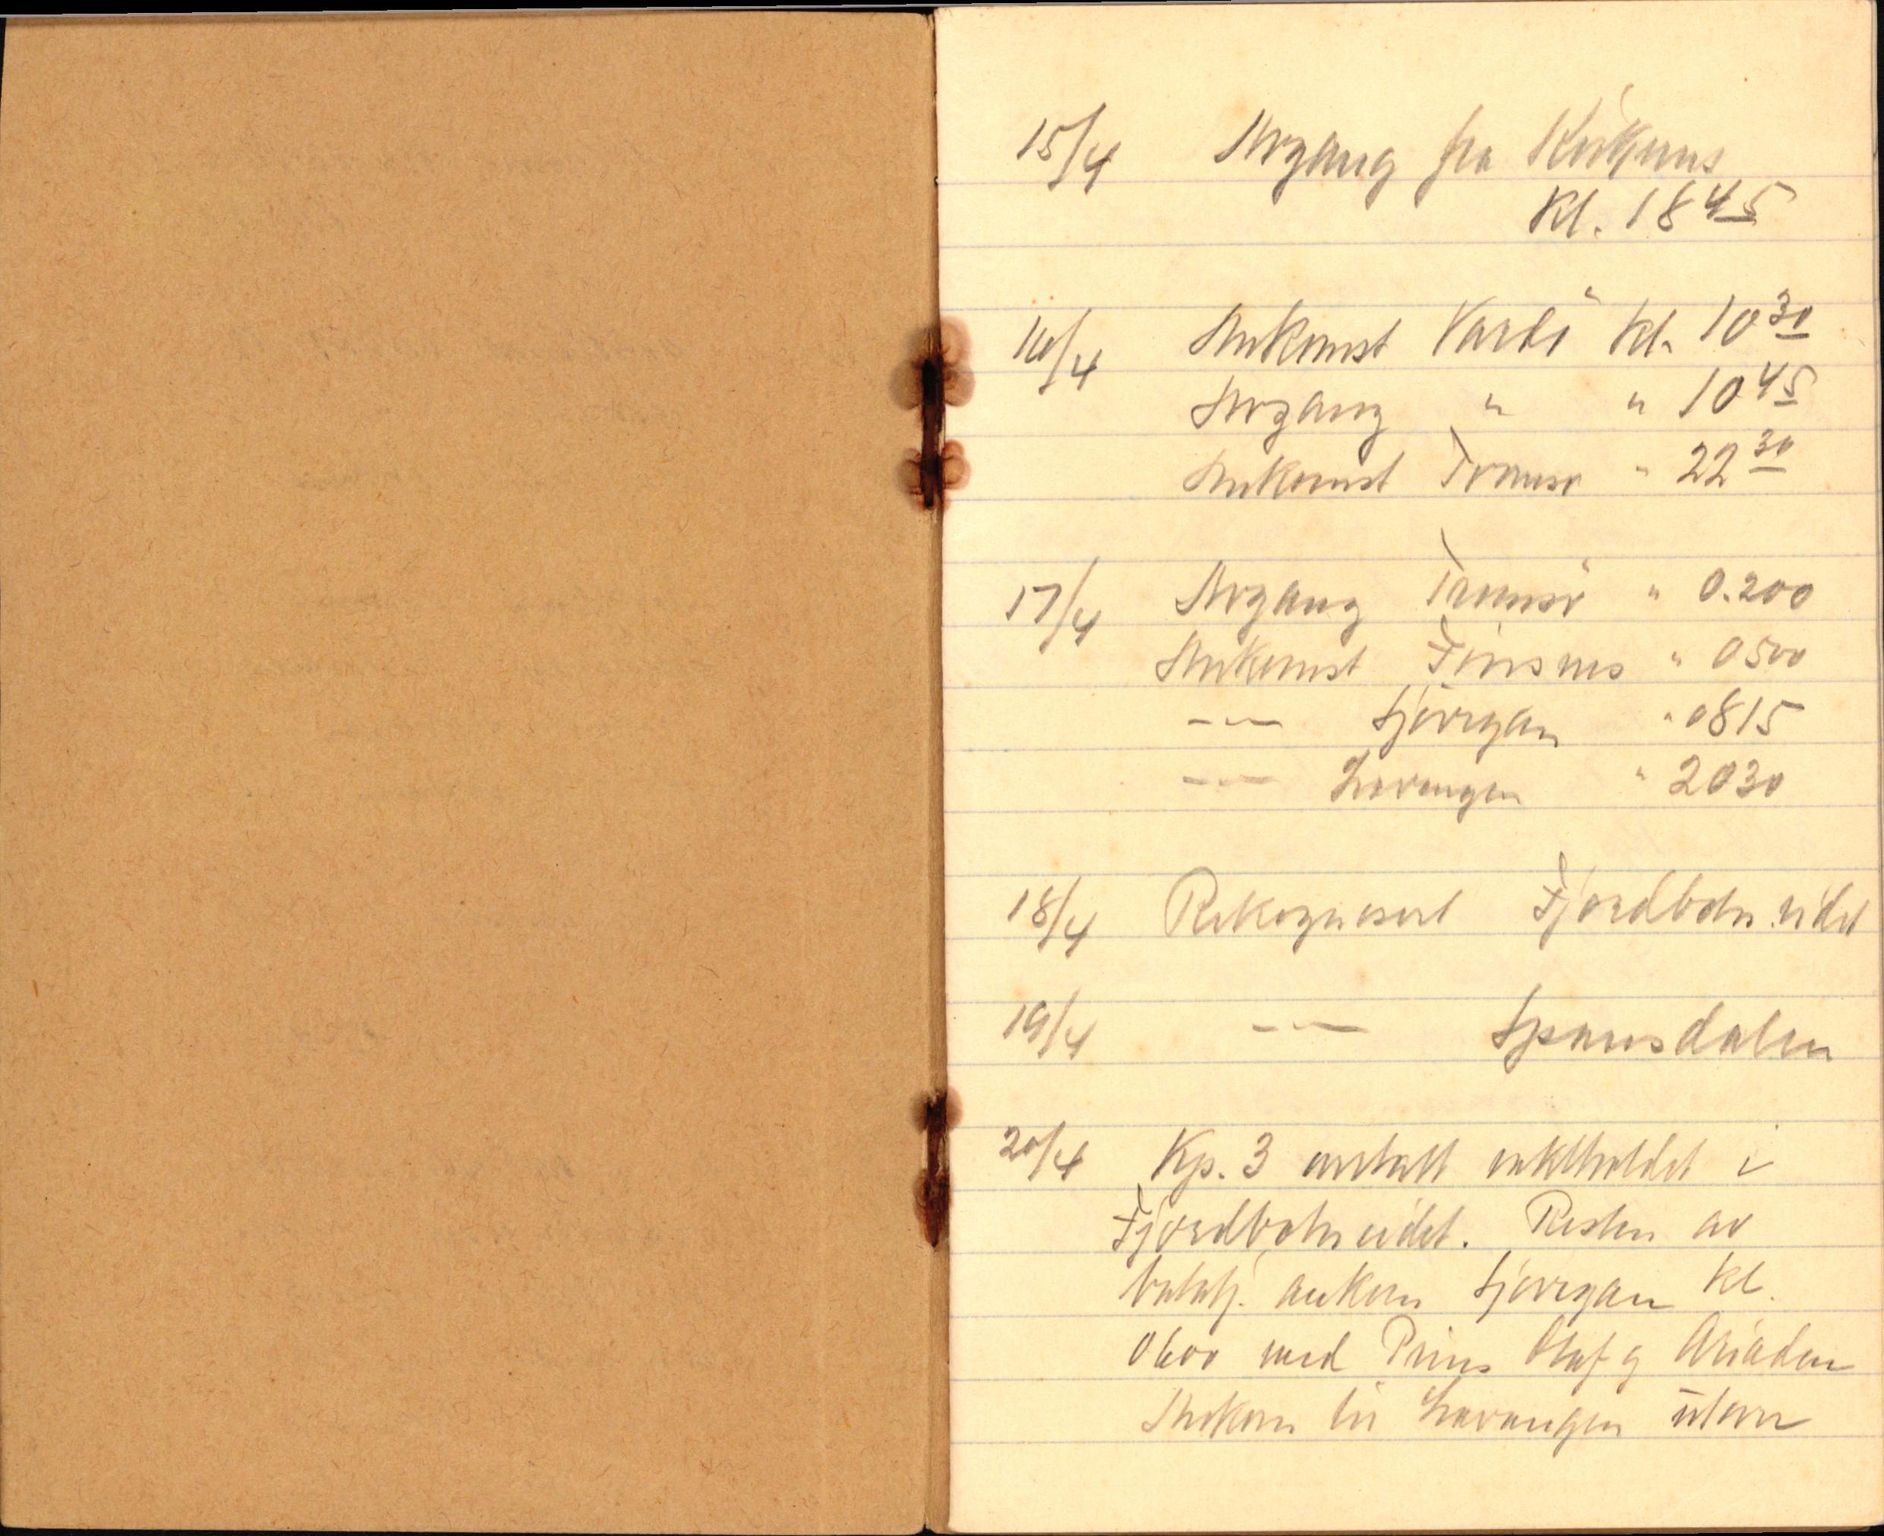 15/4 Avgang fra Kirkenes
kl. 18 45
16/4 Ankomst Vardö kl. 10 30
Avgang " " 10 45
Ankomst Tromsö " 22 30
17/4 Avgang Tromsö " 0.200
Ankomst Finsnes " 0500
— " — Sjövegan " 0815
— " — Lavangen " 2030
18/4 Rekognosert Fjordbotneidet
19/4 — " — Spansdalen
20/4 Kp. 3 inntatt vaktholdet i
Fjordbotneidet. Resten av
batalj. ankom Sjövegan kl.
0600 med Prins Olaf og Ariadne
Ankom til Lavangen utover